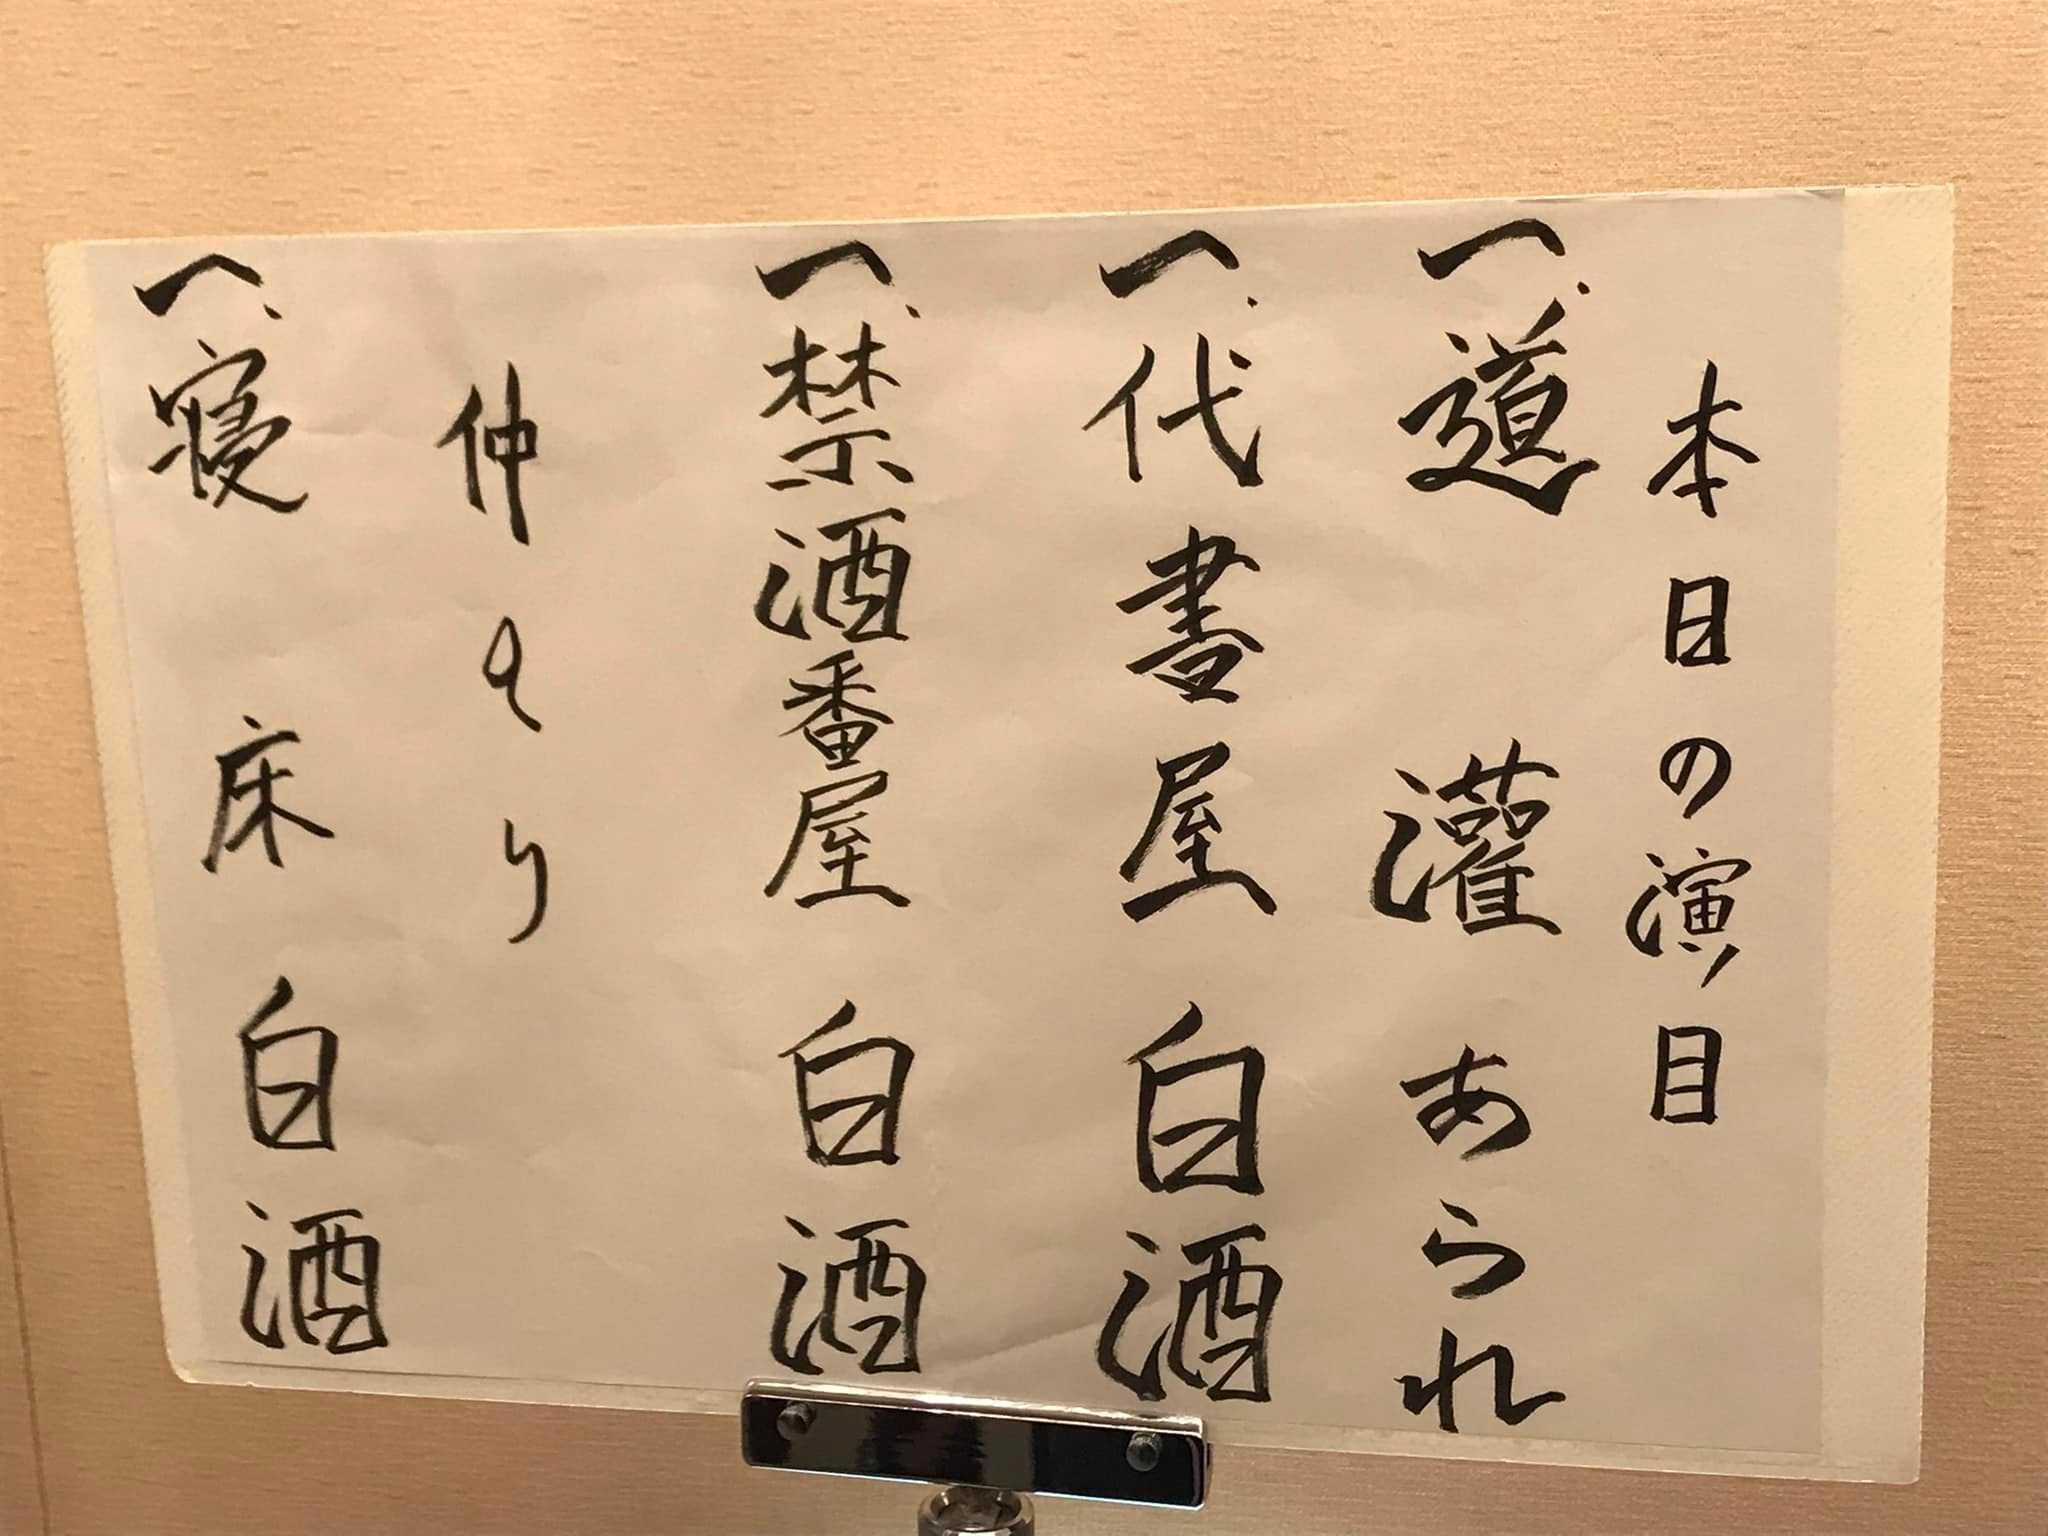 本日の演目
一、道灌 あられ
一、代書屋 白酒
一、禁酒番屋 白酒
仲入り
一、寝床 白酒